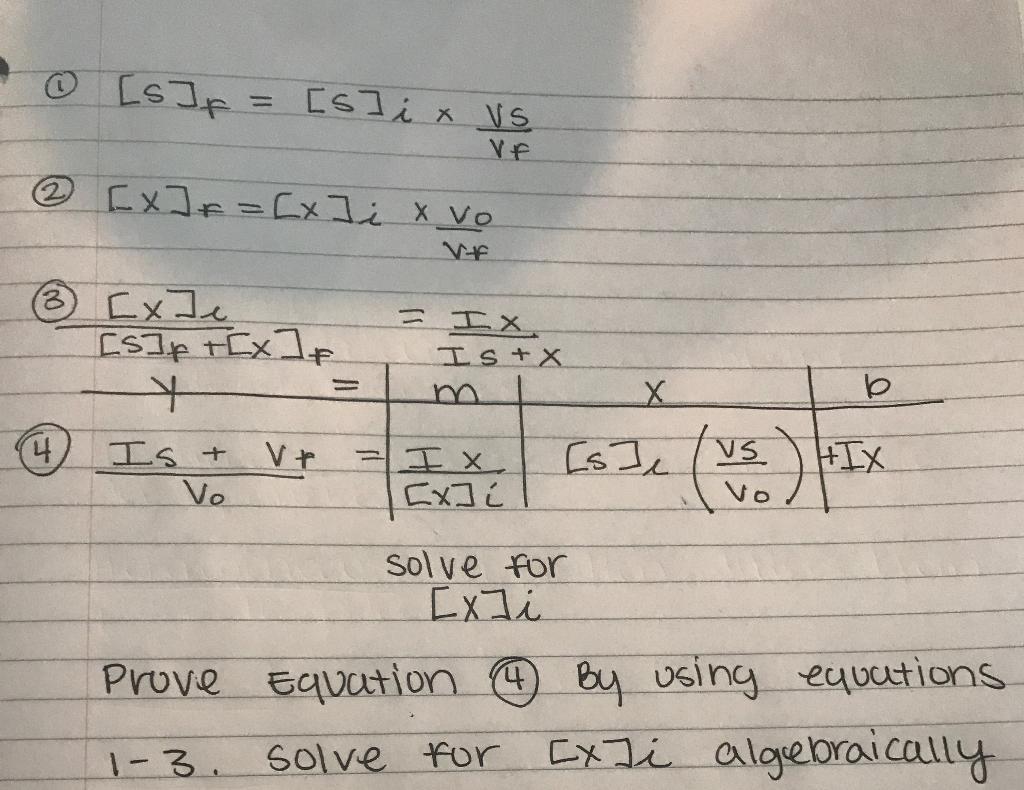 ① [S]f = [S]i x Vs/Vf
② [X]f = [X]i x Vo/Vf
③ [X]i/[S]f + [X]f = Ix/Is+x
y = m x b
④ Is + Vf/Vo = Ix/[X]i [S]i (Vs/Vo) +Ix
solve for
[X]i
Prove Equation ④ By using equations
1-3. solve for [X]i algebraically